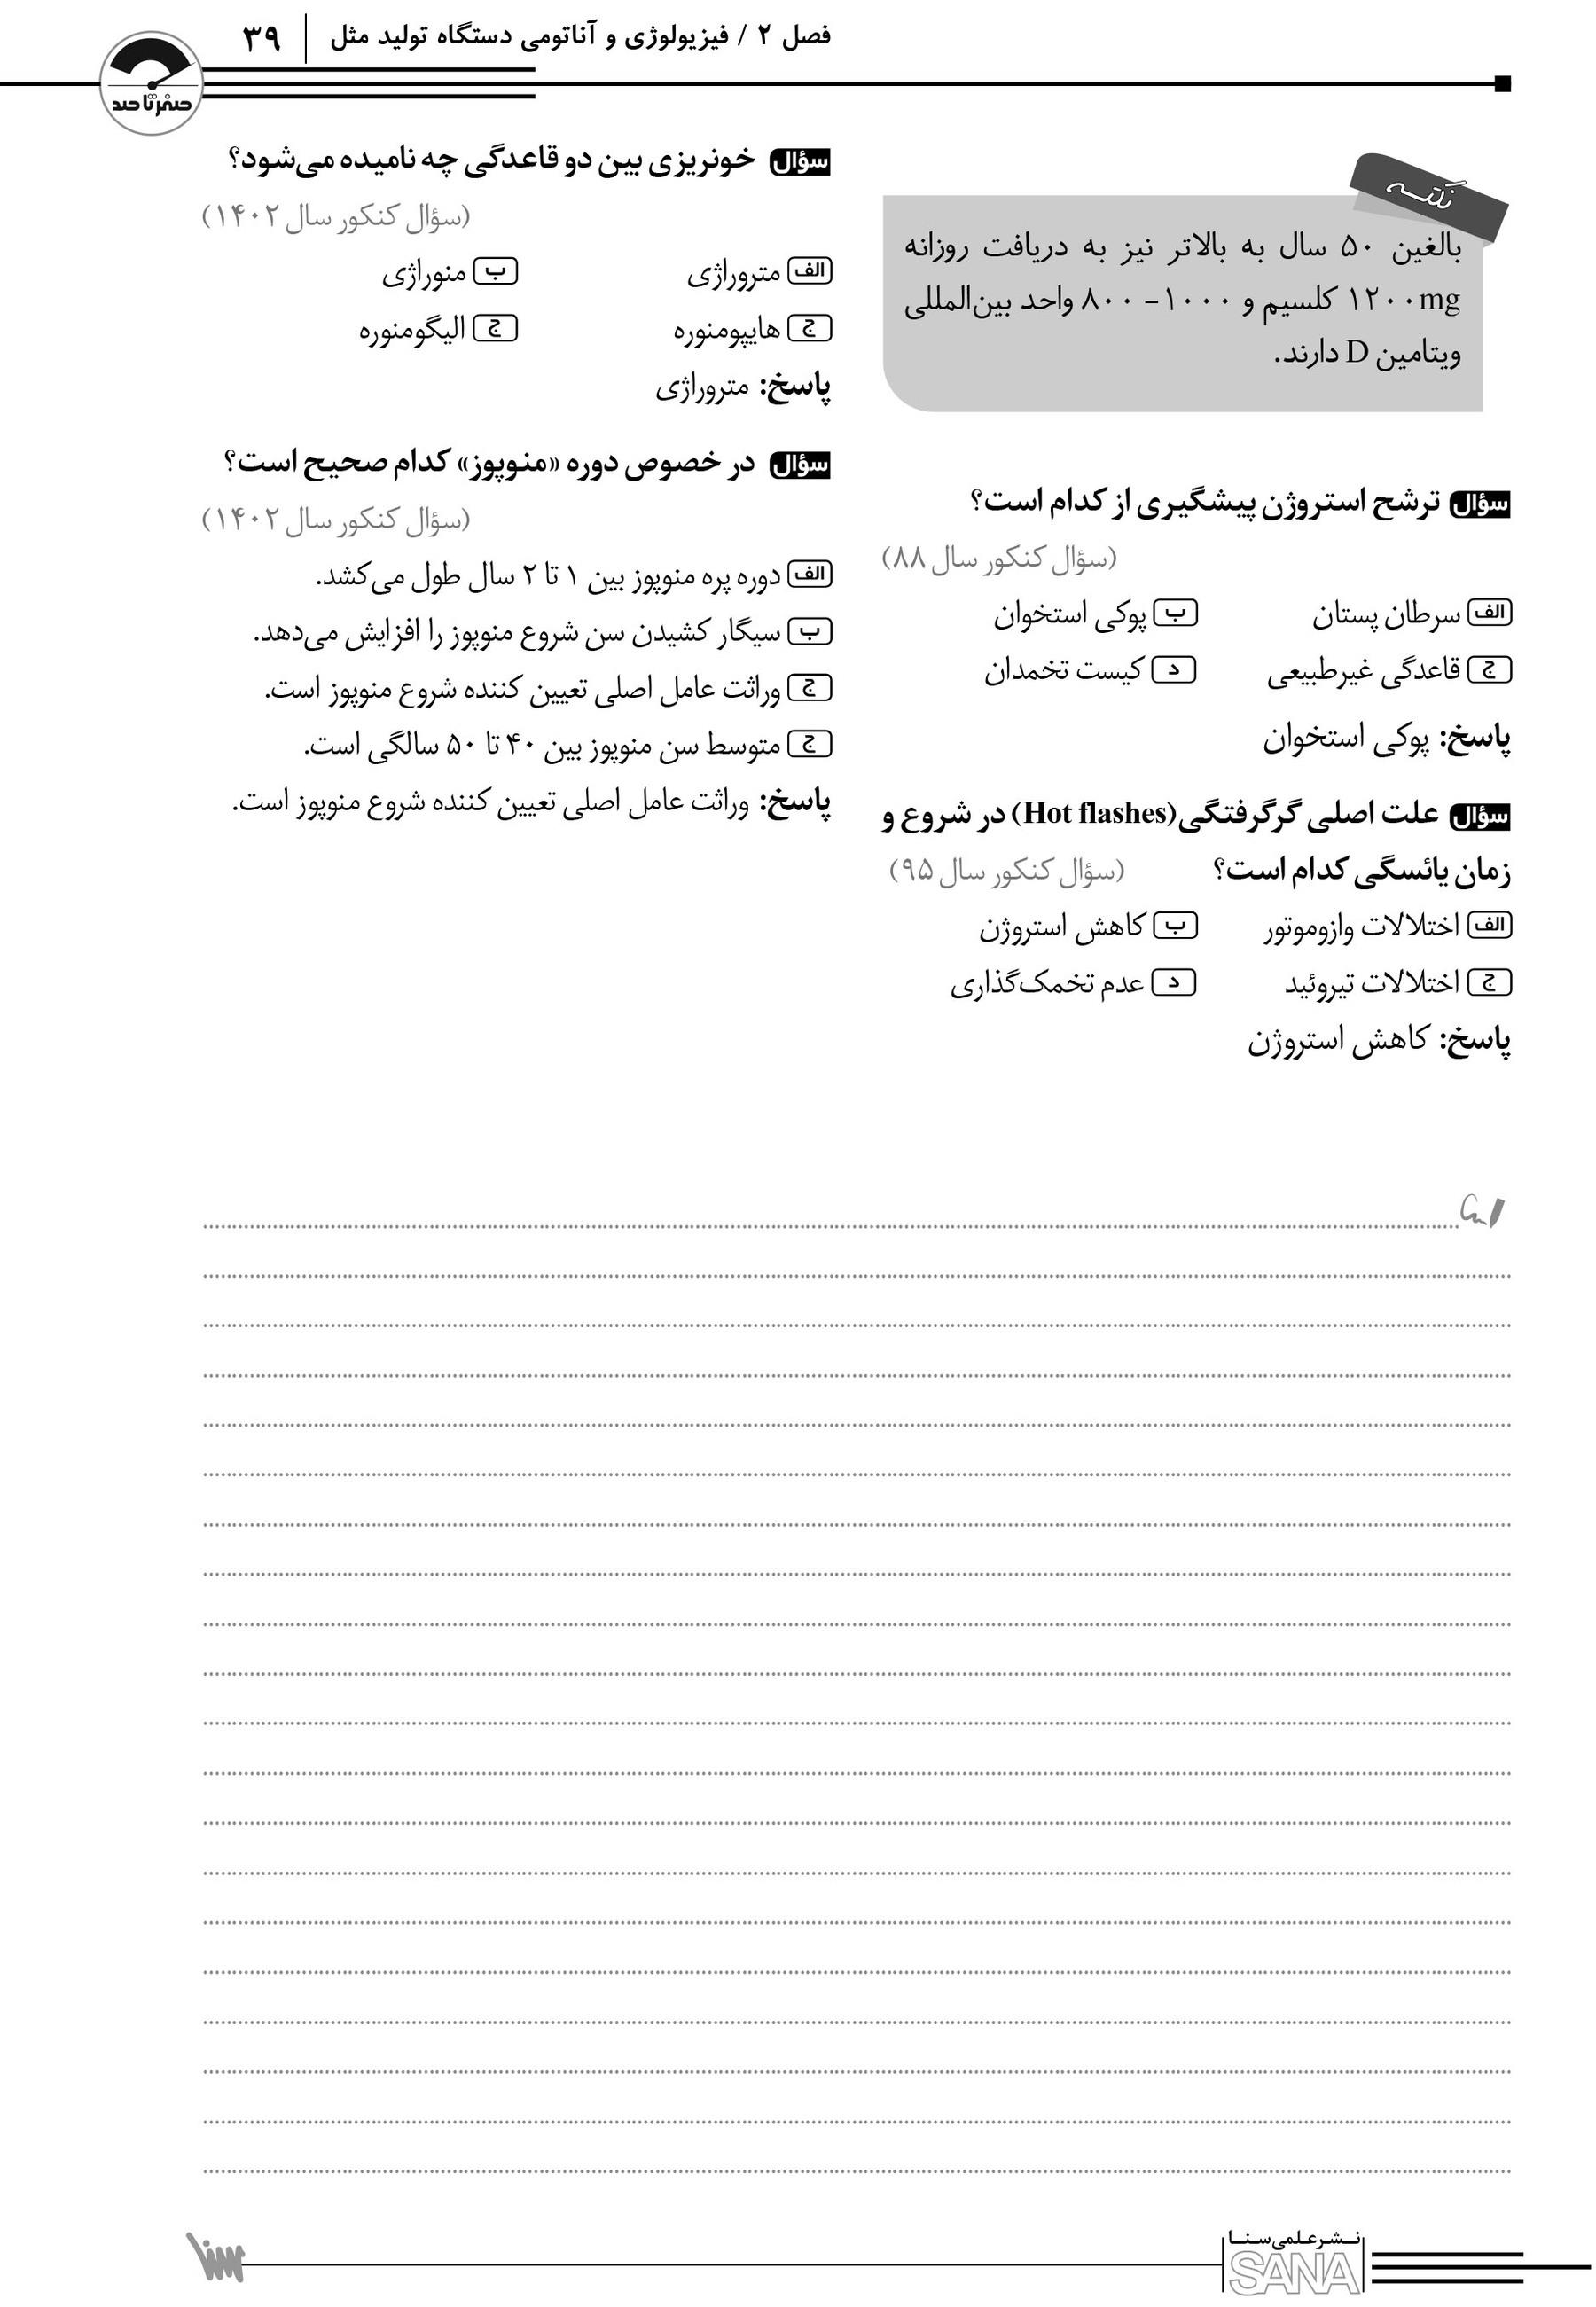 فصل ۲ / فیزیولوژی و آناتومی دستگاه تولید مثل | ۳۹
صفر تا صد
نکته
بالغین ۵۰ سال به بالاتر نیز به دریافت روزانه
۱۲۰۰mg کلسیم و ۱۰۰۰ - ۸۰۰ واحد بین‌المللی
ویتامین D دارند.
سؤال ترشح استروژن پیشگیری از کدام است؟
(سؤال کنکور سال ۸۸)
الف سرطان پستان ب پوکی استخوان
ج قاعدگی غیرطبیعی د کیست تخمدان
پاسخ: پوکی استخوان
سؤال علت اصلی گرگرفتگی(Hot flashes) در شروع و
زمان یائسگی کدام است؟ (سؤال کنکور سال ۹۵)
الف اختلالات وازوموتور ب کاهش استروژن
ج اختلالات تیروئید د عدم تخمک‌گذاری
پاسخ: کاهش استروژن
سؤال خونریزی بین دو قاعدگی چه نامیده می‌شود؟
(سؤال کنکور سال ۱۴۰۲)
الف متروراژی ب منوراژی
ج هایپومنوره ج الیگومنوره
پاسخ: متروراژی
سؤال در خصوص دوره «منوپوز» کدام صحیح است؟
(سؤال کنکور سال ۱۴۰۲)
الف دوره پره منوپوز بین ۱ تا ۲ سال طول می‌کشد.
ب سیگار کشیدن سن شروع منوپوز را افزایش می‌دهد.
ج وراثت عامل اصلی تعیین کننده شروع منوپوز است.
ج متوسط سن منوپوز بین ۴۰ تا ۵۰ سالگی است.
پاسخ: وراثت عامل اصلی تعیین کننده شروع منوپوز است.
نشر علمی سنا
SANA